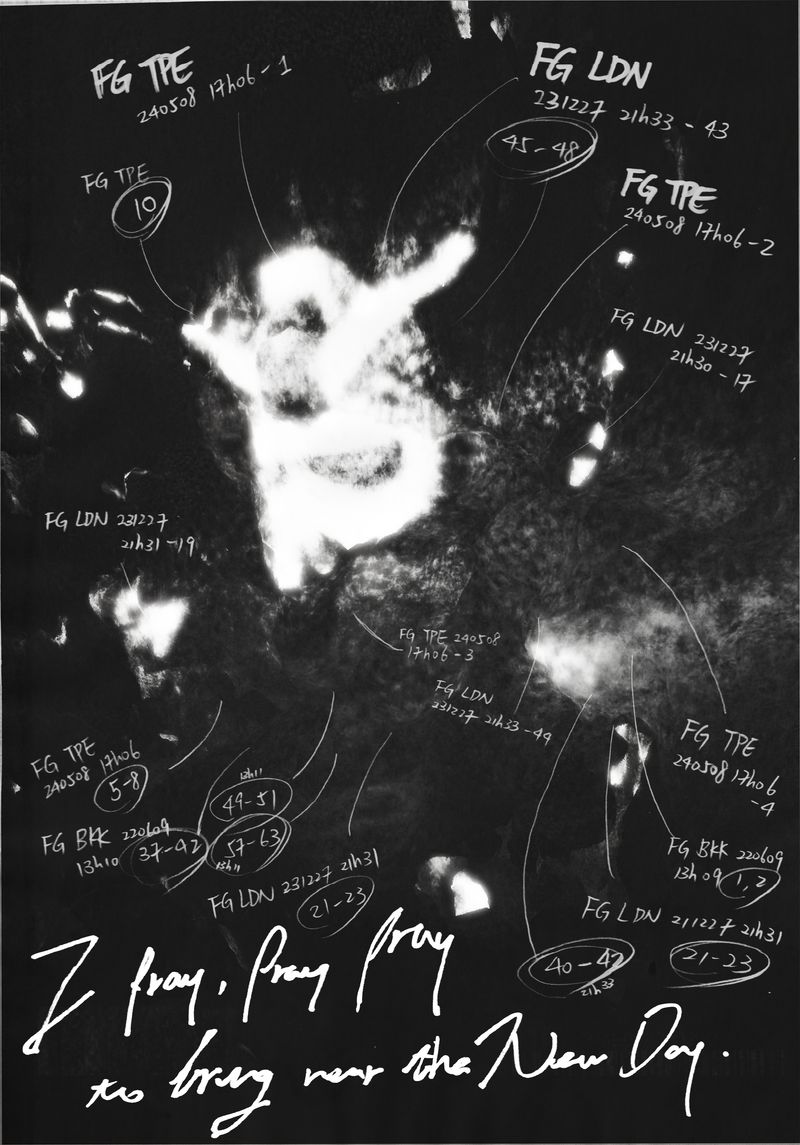 FG TPE
240508 17h06-1
FG LDN
231227 21h33-43
45-48
FG TPE
10
FG TPE
240508 17h06-2
FG LDN 231227
21h30-17
FG LDN 231227
21h31-19
FG TPE 240508
17h06-3
FG LDN
231227 21h33-44
FG TPE
240508 17h06
5-8
FG TPE
240508 17h06
-4
13h11
49-51
FG BKK 220609
13h10 37-42
57-63
13h11
FG BKK 220609
13h09 1,2
FG LDN 231227 21h31
21-23
FG LDN 211227 21h31
21-23
40-42
21h33
I pray, pray pray
to bring near the New Day.